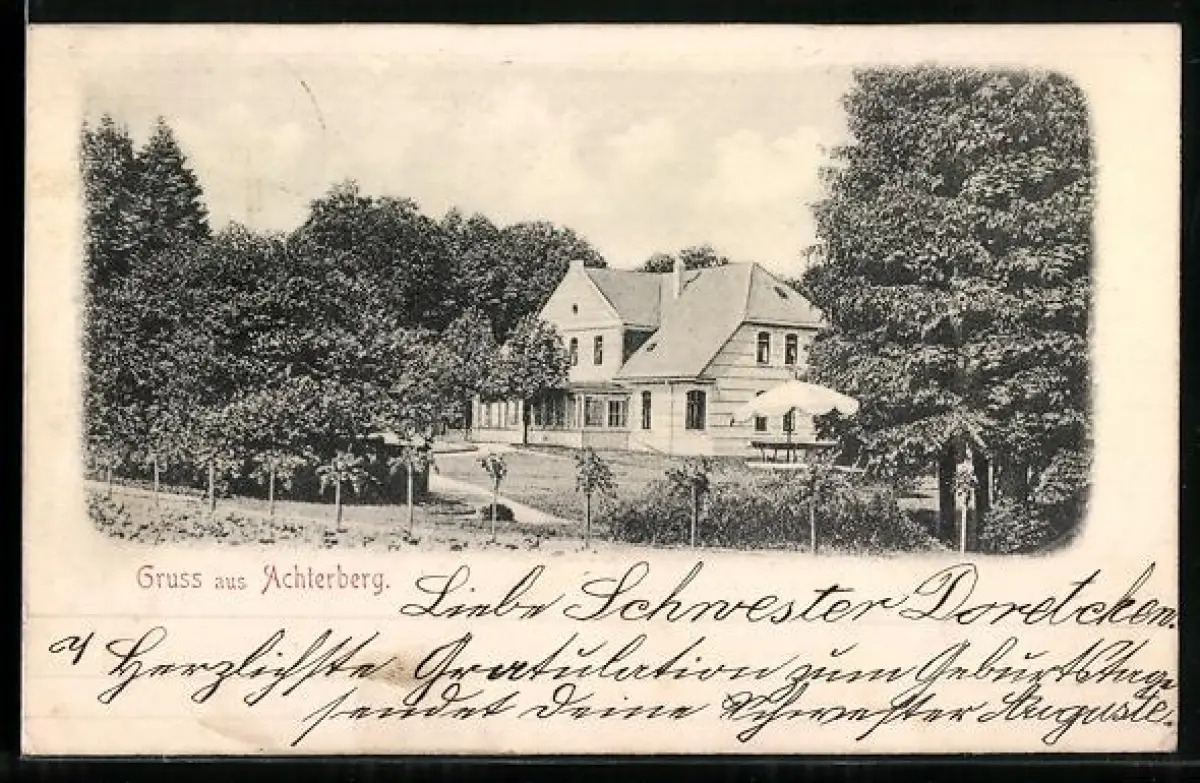 Gruss aus Achterberg.
Liebe Schwester Doretchen.
Herzlichste Gratulation zum Geburtstage
sendet Deine Schwester Auguste.